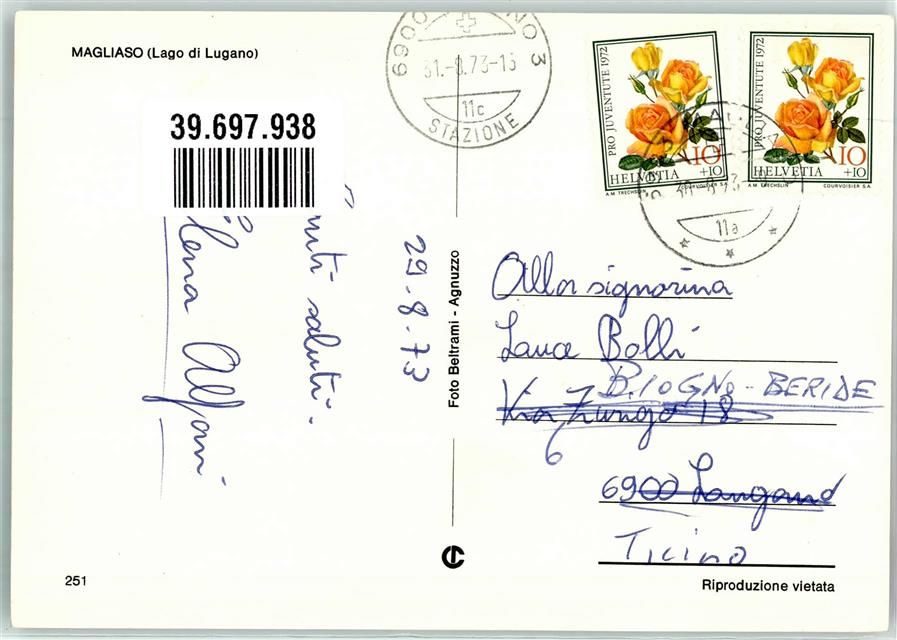 MAGLIASO (Lago di Lugano)
39.697.938
saluti.
Elena Alfani
29.8.73
Foto Beltrami - Agnuzzo
251
3
31.-8.73-13
11c
STAZIONE
PRO JUVENTUTE 1972
10
+10
HELVETIA
A.M. TRECHSLIN COURVOISIER S.A.
PRO JUVENTUTE 1972
10
+10
HELVETIA
A.M. TRECHSLIN COURVOISIER S.A.
11a
Alla signorina
Laura Bolli
BIOGNO-BERIDE
Via Lungo 18
6900
Ticino
Riproduzione vietata